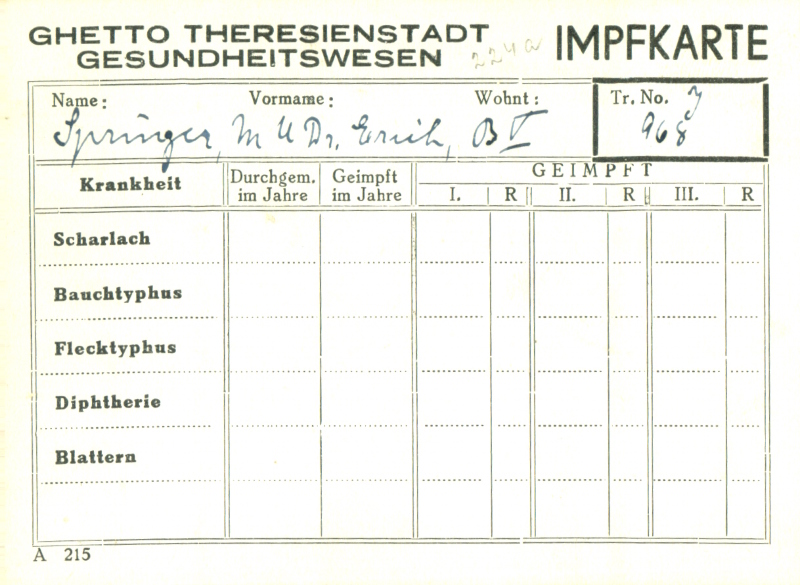 GHETTO THERESIENSTADT
GESUNDHEITSWESEN
224a
IMPFKARTE
Name: Vorname: Wohnt: Tr. No.
Springer, MUDr. Erich, BV 968
Krankheit
Durchgem. im Jahre
Geimpft im Jahre
GEIMPFT
I. R II. R III. R
Scharlach
Bauchtyphus
Flecktyphus
Diphtherie
Blattern
A 215